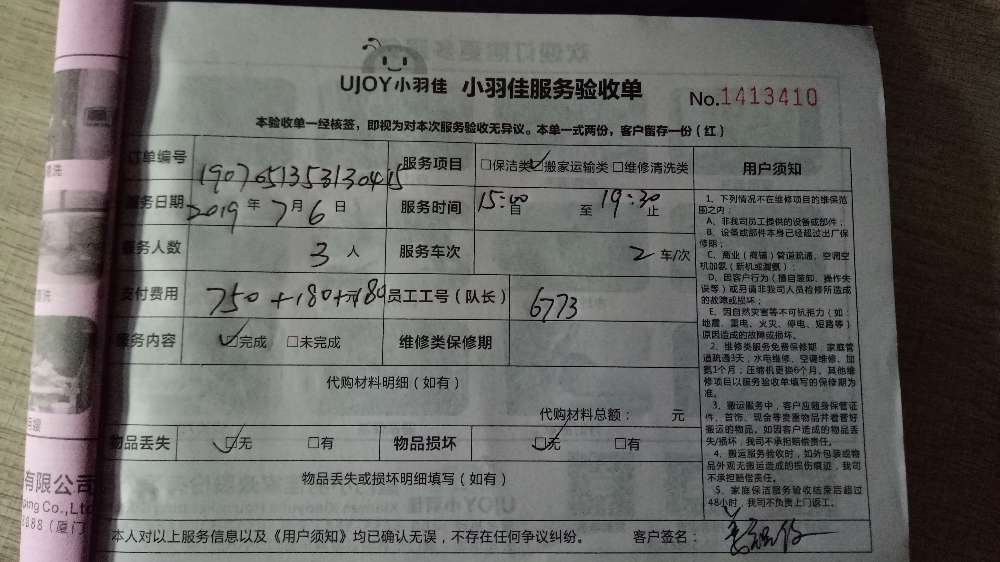 UJOY小羽佳 小羽佳服务验收单 No.1413410
本验收单一经核签，即视为对本次服务验收无异议。本单一式两份，客户留存一份（红）
订单编号 19076513531304415 服务项目 □保洁类 ☑搬家运输类 □维修清洗类
服务日期 2019年7月6日 服务时间 15:00自 至 19:30止
服务人数 3人 服务车次 2车/次
支付费用 750+180+ 员工工号（队长） 6773
服务内容 ☑完成 □未完成 维修类保修期
代购材料明细（如有）
代购材料总额： 元
物品丢失 ☑无 □有 物品损坏 ☑无 □有
物品丢失或损坏明细填写（如有）
本人对以上服务信息以及《用户须知》均已确认无误，不存在任何争议纠纷。 客户签名：
用户须知
1、下列情况不在维修项目的维保范
围之内：
A、非我司员工提供的设备或部件；
B、设备或部件本身已经超过出厂保
修期；
C、商业（商铺）管道疏通、空调空
机加氨（新机或漏氨）；
D、因客户行为（擅自装卸、操作失
误等）或另请非我司人员检修所造成
的故障或损坏；
E、因自然灾害等不可抗拒力（如：
地震、雷电、火灾、停电、短路等）
原因造成的故障或损坏。
2、维修类服务免费保修期：家庭管
道疏通3天，水电维修、空调维修、加
氨1个月；压缩机更换6个月。其他维
修项目以服务验收单填写的保修期为
准。
3、搬运服务中，客户应随身保管证
件、首饰、现金等贵重物品并看管好
搬运的物品。如因客户造成的物品丢
失/损坏，我司不承担赔偿责任。
4、搬运服务验收时，如外包装或物
品外观无搬运造成的损伤痕迹，我司
不承担赔偿责任。
5、家庭保洁服务验收结束后超过
48小时，我司不负责上门返工。
清洗
清洗
有限公司
ping Co.,Ltd
8888（厦门